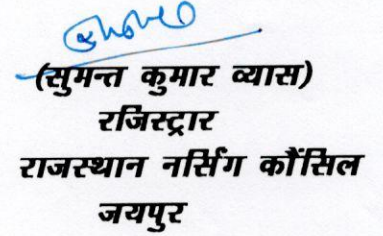 (सुमन्त कुमार व्यास)
रजिस्ट्रार
राजस्थान नर्सिंग कौंसिल
जयपुर